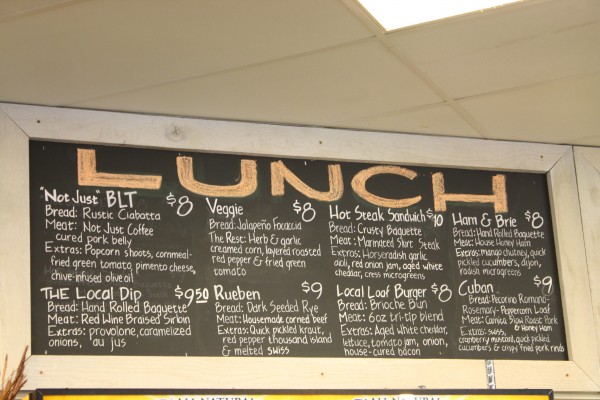 LUNCH
"Not Just" BLT $8
Bread: Rustic Ciabatta
Meat: Not Just Coffee
cured pork belly
Extras: Popcorn shoots, cornmeal-
fried green tomato, pimento cheese,
chive-infused olive oil
Veggie $8
Bread: Jalapeño Focaccia
The Rest: Herb & garlic
creamed corn, layered roasted
red pepper & fried green
tomato
Hot Steak Sandwich $10
Bread: Crusty Baguette
Meat: Marinated Skirt Steak
Extras: Horseradish garlic
aioli, red onion jam, aged white
cheddar, cress microgreens
Ham & Brie $8
Bread: Hand Rolled Baguette
Meat: House Honey Ham
Extras: mango chutney, quick
pickled cucumbers, dijon,
radish microgreens
THE Local Dip $9.50
Bread: Hand Rolled Baguette
Meat: Red Wine Braised Sirloin
Extras: provolone, caramelized
onions, au jus
Rueben $9
Bread: Dark Seeded Rye
Meat: Housemade corned beef
Extras: Quick pickled kraut,
red pepper thousand island
& melted swiss
Local Loaf Burger $8
Bread: Brioche Bun
Meat: 6oz tri-tip blend
Extras: Aged white cheddar,
lettuce, tomato jam, onion,
house-cured bacon
Cuban $9
Bread: Pecorino Romano-
Rosemary-Peppercorn Loaf
Meat: Carnita Slow Roast Pork
& Honey Ham
Extras: swiss,
cranberry mustard, quick pickled
cucumbers & crispy fried pork rinds
NATURAL
NATURAL